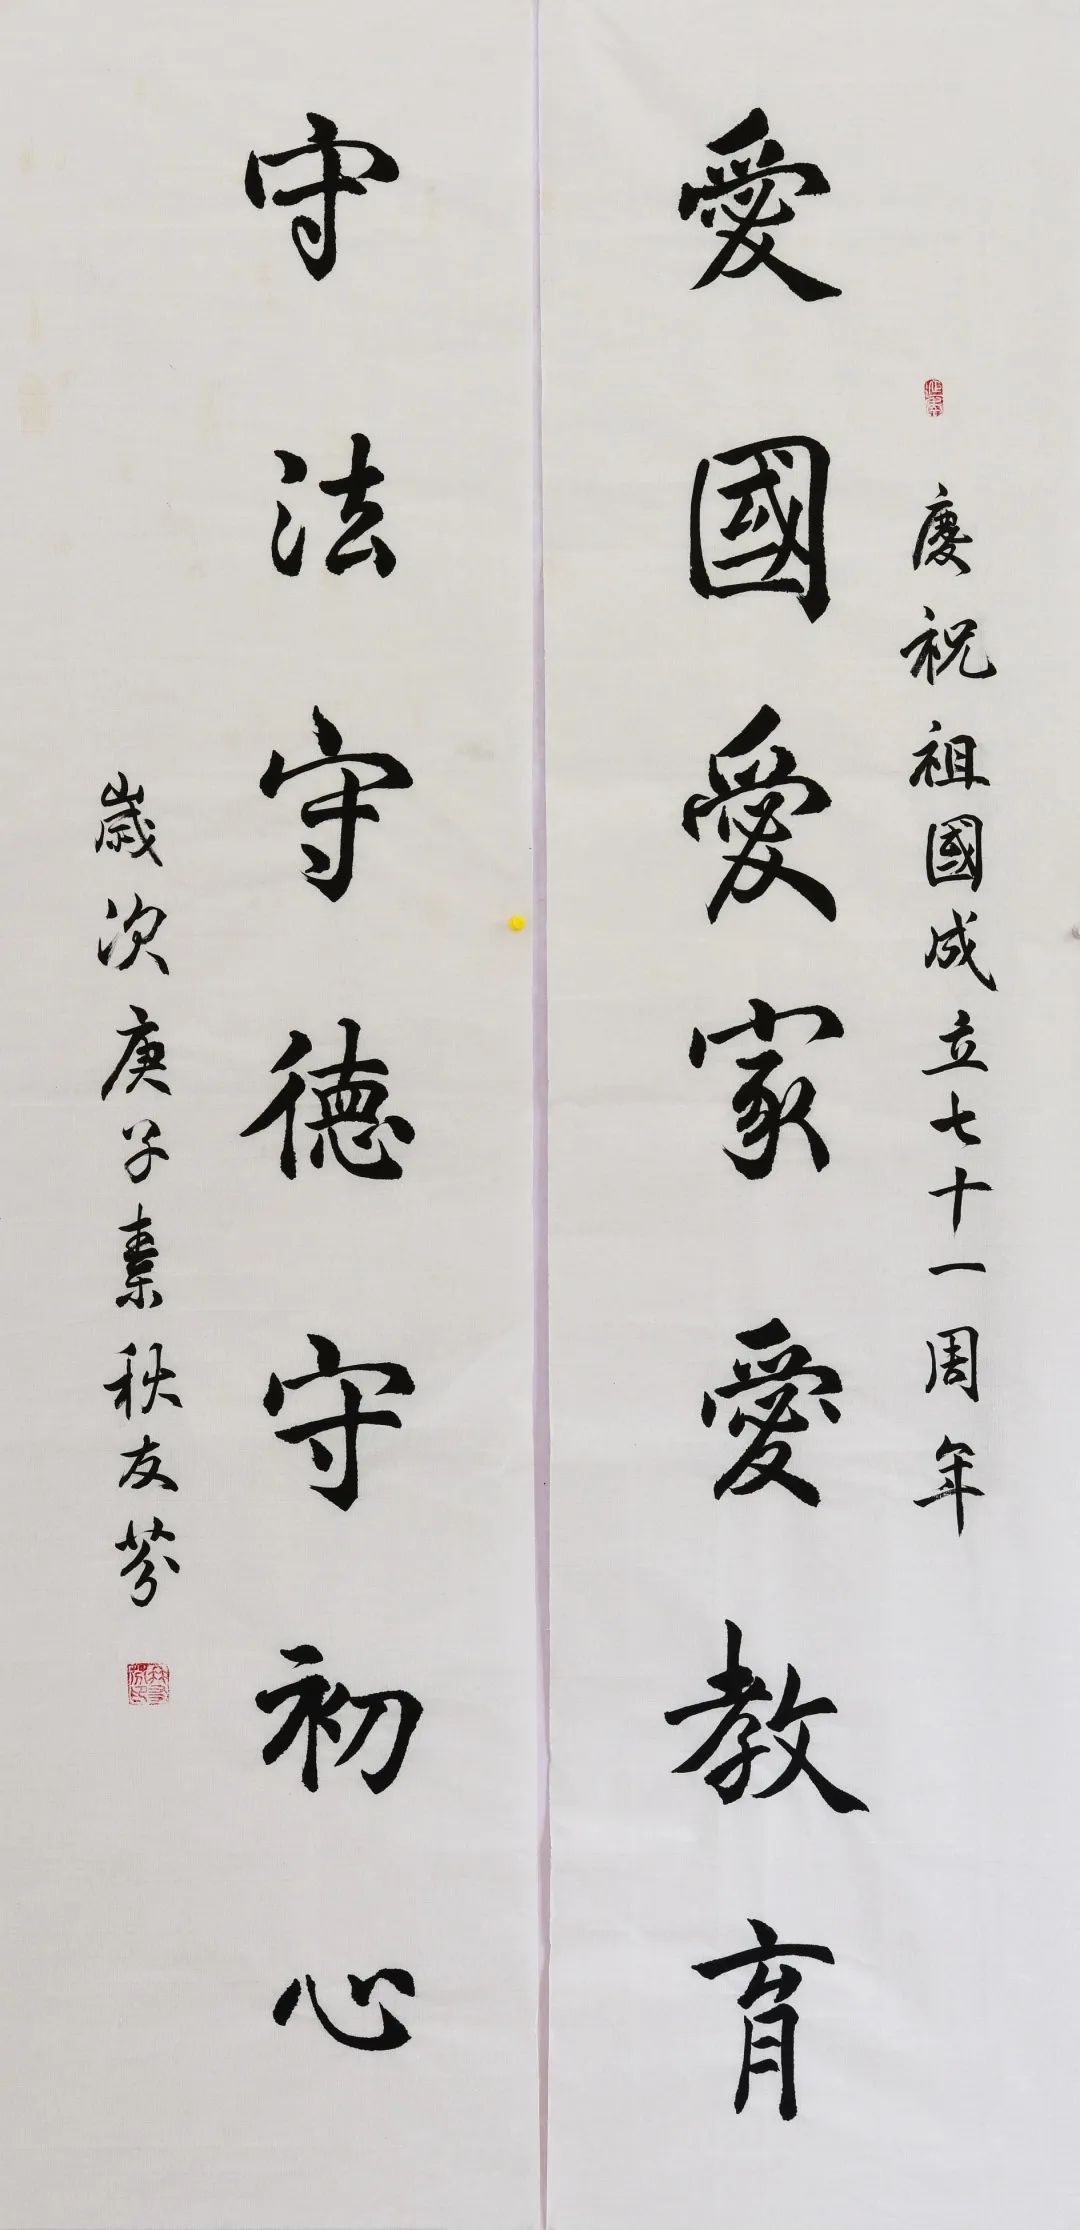 慶祝祖國成立七十一周年
愛國愛家愛教育
守法守德守初心
歲次庚子素秋友芬